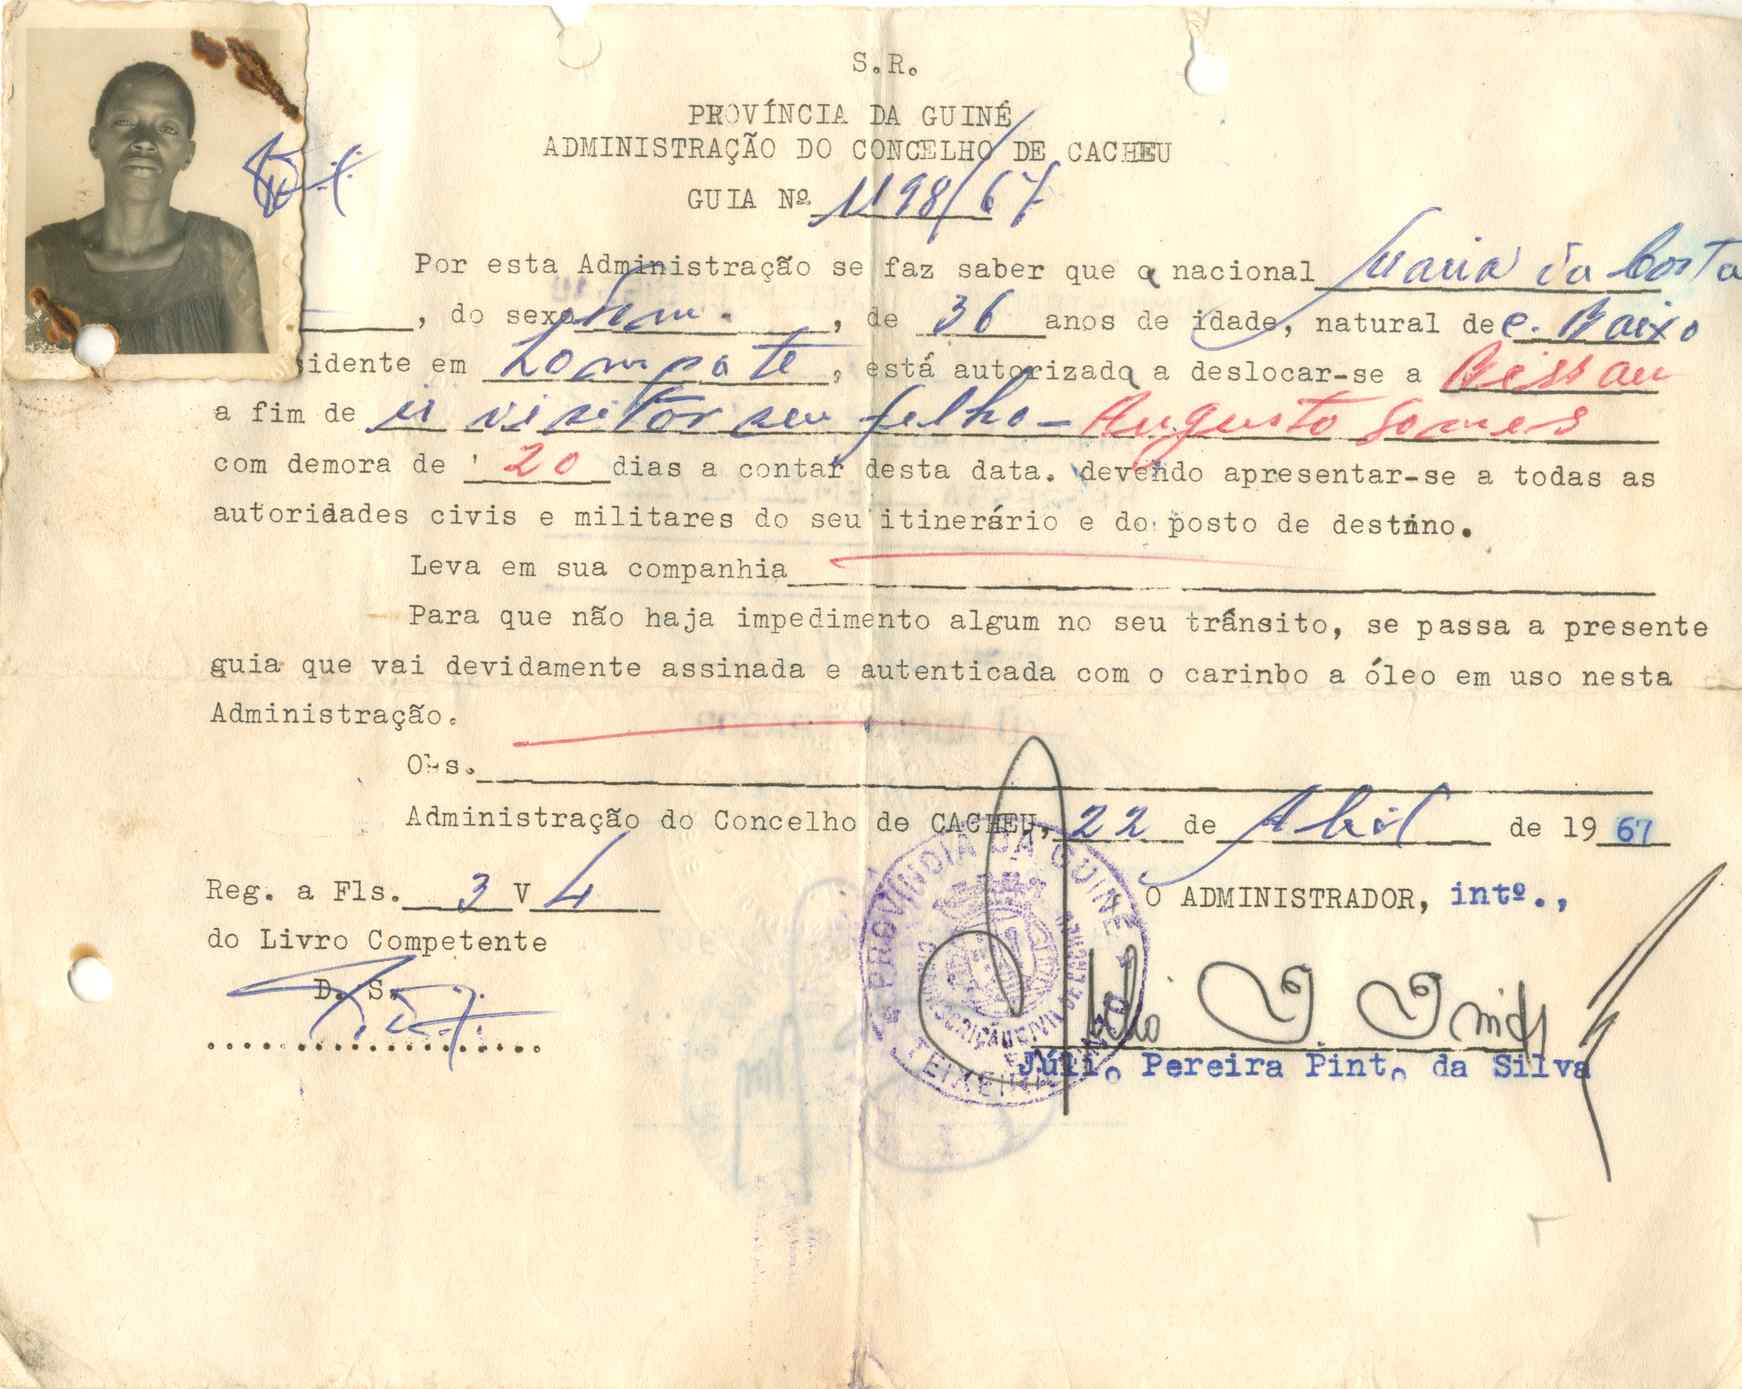 S.R.
PROVÍNCIA DA GUINÉ
ADMINISTRAÇÃO DO CONCELHO DE CACHEU
GUIA Nº 1198/67
Por esta Administração se faz saber que a nacional Maria da Costa
, do sexo fem. , de 36 anos de idade, natural de C. Baixo
sidente em , está autorizada a deslocar-se a Bissau
a fim de ir visitar seu filho - Augusto Gomes
com demora de 20 dias a contar desta data. devendo apresentar-se a todas as
autoridades civis e militares do seu itinerário e do posto de destino.
Leva em sua companhia
Para que não haja impedimento algum no seu trânsito, se passa a presente
guia que vai devidamente assinada e autenticada com o carinbo a óleo em uso nesta
Administração.
Obs.
Administração do Concelho de CACHEU, 22 de Abril de 1967
Reg. a Fls. 3 V 4
O ADMINISTRADOR, intº.,
do Livro Competente
D. S.
PROVÍNCIA DA GUINÉ
TEIXEIRA PINTO
Júlio Pereira Pinto da Silva